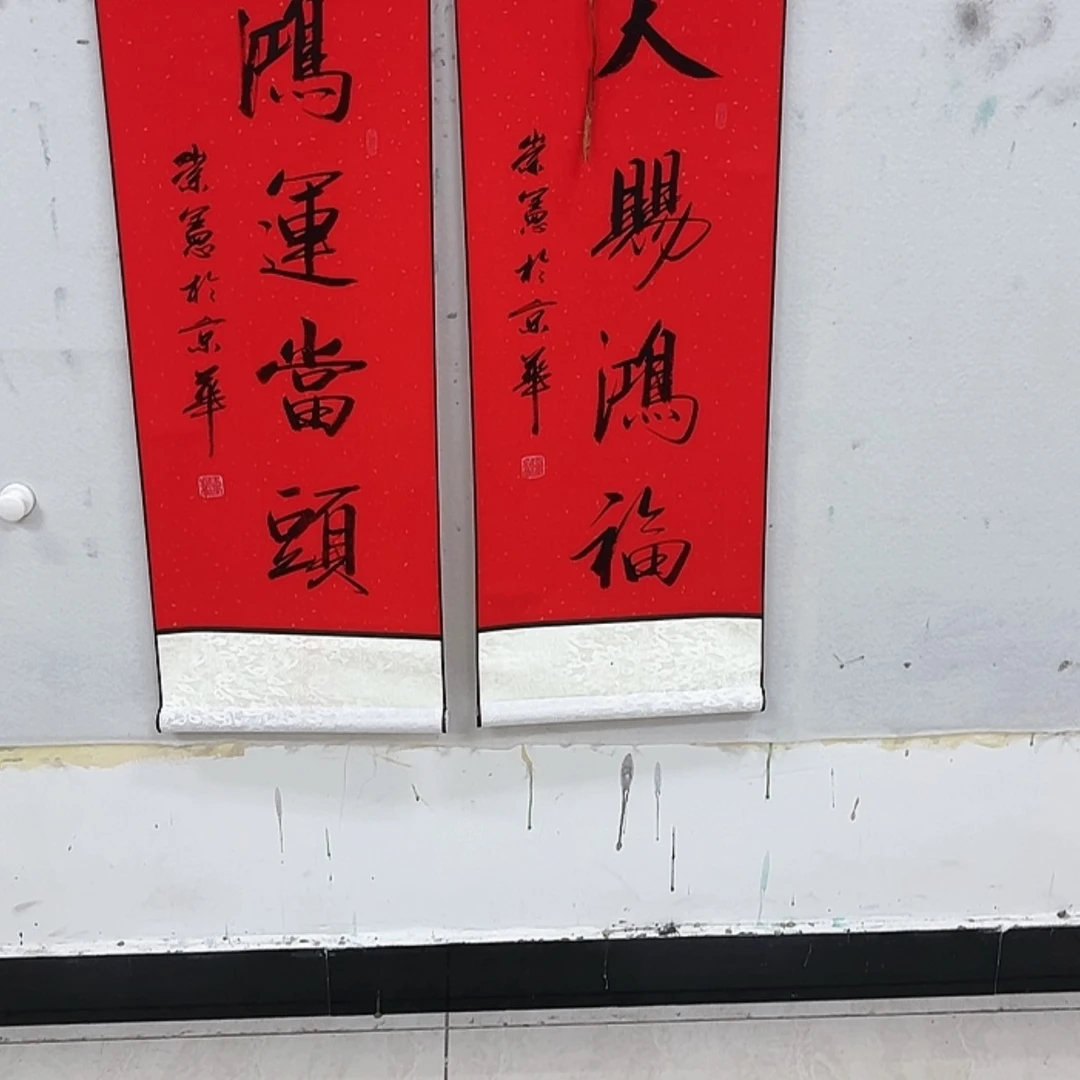 天賜鴻福
崇憲於京華
鴻運當頭
崇憲於京華